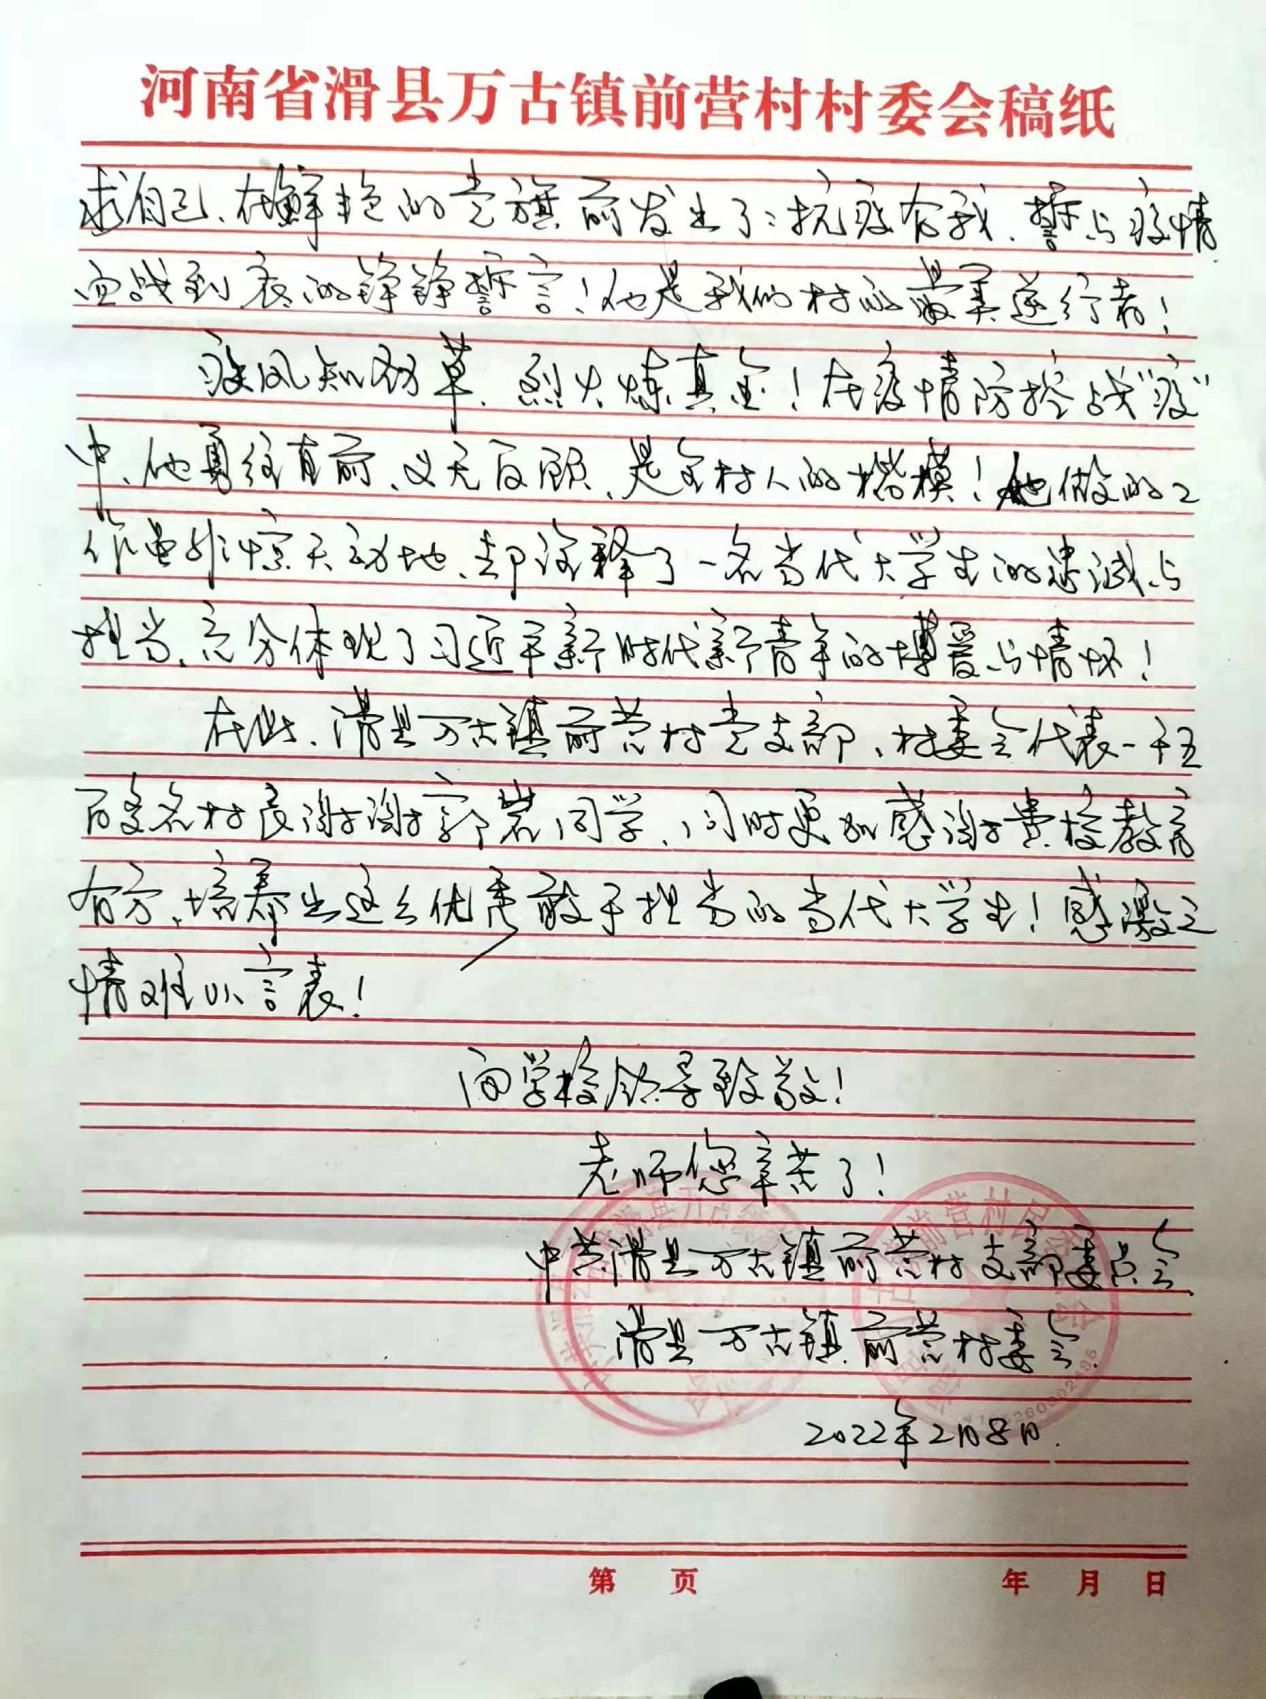 河南省滑县万古镇前营村村委会稿纸
求自己、在鲜艳的党旗前发出了:抗疫有我、誓与疫情
血战到底的铮铮誓言!他是我们村的最美逆行者!
疾风知劲草、烈火炼真金!在疫情防控战“疫”
中、他勇往直前、义无反顾、是全村人的楷模!他做的工
作虽非惊天动地、却诠释了一名当代大学生的忠诚与
担当、充分体现了习近平新时代新青年的博爱与情怀!
在此、滑县万古镇前营村党支部、村委会代表一千五
百多名村民谢谢郭岩同学、同时更加感谢贵校教育
有方、培养出这么优秀敢于担当的当代大学生!感激之
情难以言表!
向学校领导致敬!
老师您辛苦了!
中共滑县万古镇前营村支部委员会
滑县万古镇前营村委会
2022年2月8日.
第 页 年 月 日